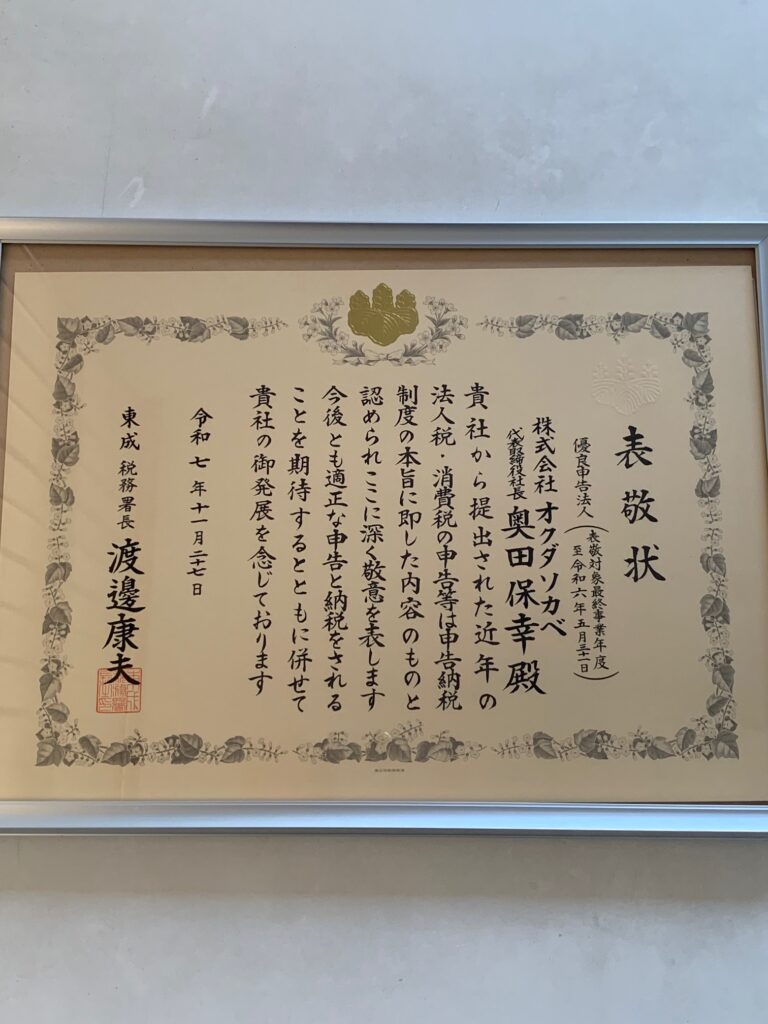 表敬状
優良申告法人
(表敬対象最終事業年度
至令和六年五月三十一日)
株式会社 オクダソカベ
代表取締役社長 奥田保幸殿
貴社から提出された近年の
法人税・消費税の申告等は申告納税
制度の本旨に即した内容のものと
認められここに深く敬意を表します
今後とも適正な申告と納税をされる
ことを期待するとともに併せて
貴社の御発展を念じております
令和七年十一月二十七日
東成税務署長 渡邊康夫